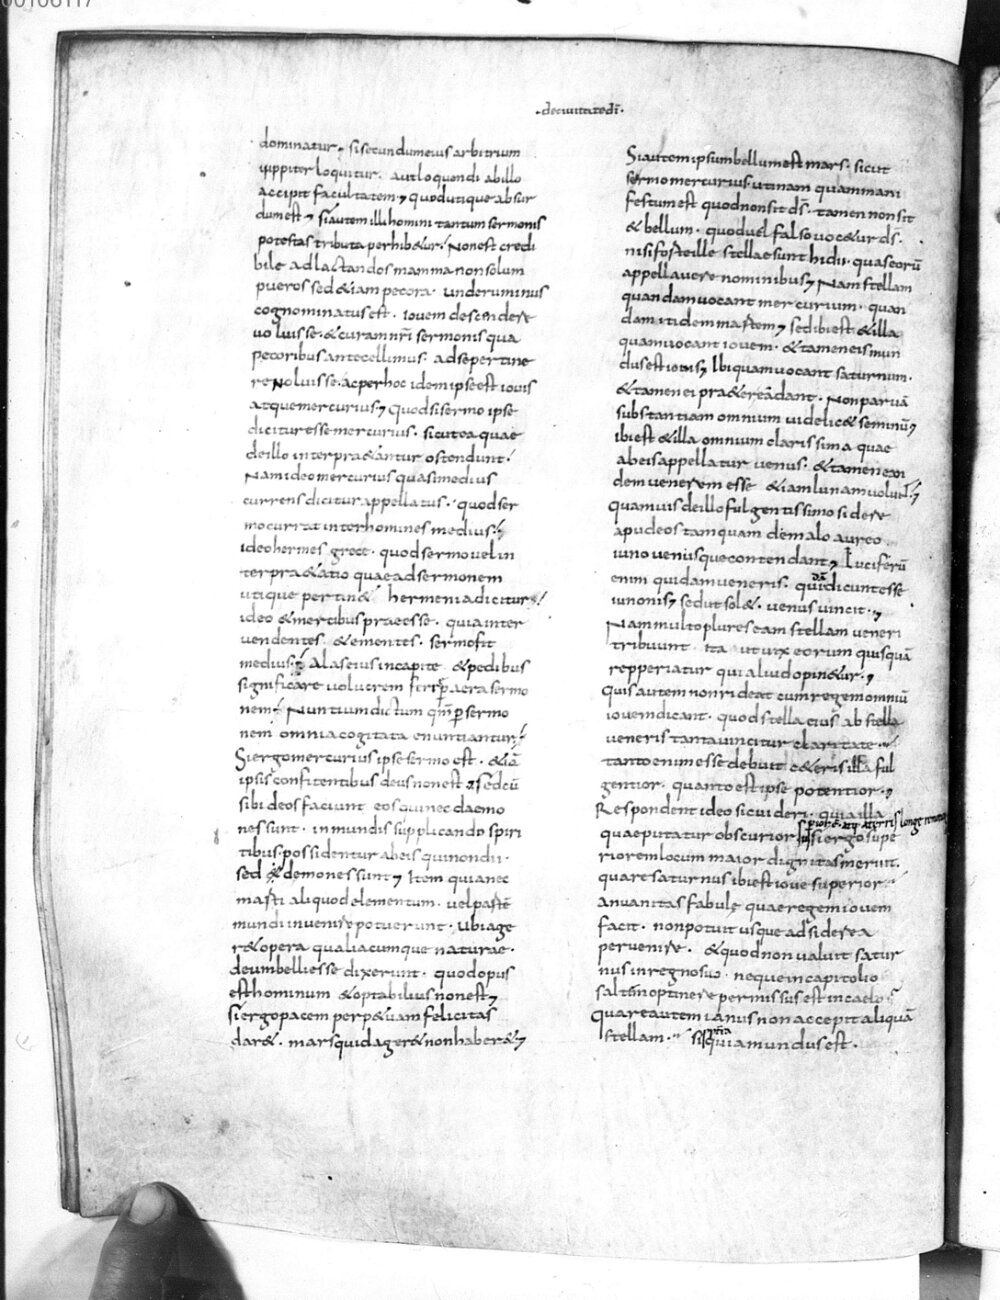 00106117
·deciuitatedi̅·
dominatur· sisecundumeius arbitrium
iuppiter loquitur· aut loquendi abillo
accipit facultatem; quodutique absur
dumest; siautem illi homini tantum sermonis
potestas tributa perhib&ur· Nonest credi
bile adlactandos mamma non solum
pueros sed &iam pecora· underuminus
cognominatus est· iouem descendere
uoluisse· & curam nr̅i sermonis qua
pecoribus antecellimus· adse pertine
re Noluisse· ac perhoc idem ipse est iouis
atque mercurius; quod si sermo ipse
dicitur esse mercurius· sicut ea quae
deillo interpra&antur ostendunt·
Nam ideo mercurius quasi medius
currens dicitur appellatus· quod ser
mo currat inter homines medius·
ideo hermes grece· quod sermo uel in
terpra&atio quae ad sermonem
utique pertin& hermenia dicitur·
ideo & mercibus praeesse· quia inter
uendentes & ementes· sermo fit
medius· Alas eius in capite & pedibus
significare uolucrem ferri p aera sermo
nem· Nuntium dictum qm̅ p sermo
nem omnia cogitata enuntiantur·
Si ergo mercurius ipse sermo est· &iā
ipsis confitentibus deus non est sed cū
sibi deos faciunt eos qui nec daemo
nes sunt· inmundis supplicando spiri
tibus possidentur ab eis qui non dii·
sed demones sunt; Item quia nec
marti aliquod elementum· uel partē
mundi inuenire potuerunt· ubi age
r& opera qualiacumque naturae·
deum belli esse dixerunt· quod opus
est hominum & optabilius non est;
si ergo pacem perp&uam felicitas
dar&· mars quid ager& non haber&;
Si autem ipsum bellum est mars· sicut
sermo mercurius· utinam quam mani
festum est quod non sit ds̅· tamen non sit
& bellum· quod uel falso uoc&ur ds̅·
nisi forte ille stellae sunt hi dii· quas eorū
appellauere nominibus; Nam stellam
quandam uocant mercurium· quan
dam itidem martem; sed ibi est & illa
quam uocant iouem· & tamen eis mun
dus est iouis; Ibi quam uocant saturnum·
& tamen ei pra&erea dant· Non paruā
substantiam omnium uidelic& seminū;
ibi est & illa omnium clarissima quae
ab eis appellatur uenus· & tamen ean
dem uenerem esse &iam lunam uolunt;
quamuis de illo fulgentissimo sidere
apud eos tamquam de malo aureo
iuno uenusque contendant; Luciferū
enim quidam ueneris· quidā dicunt esse
iunonis; sed ut sol&· uenus uincit·;
Nam multo plures eam stellam ueneri
tribuunt ita ut uix eorum quisquā
repperiatur qui aliud opin&ur·;
quis autem non rideat cum regem omniū
iouem dicant· quod stella eius ab stella
ueneris tanta uincitur claritate·
tanto enim esse debuit c&eris illa ful
gentior· quanto est ipse potentior·;
Respondent ideo sic uideri· quia illa
quae putatur obscurior superior ē atq· a terris longe remotior
si ergo supe
riorem locum maior dignitas meruit·
quare saturnus ibi est ioue superior·
an uanitas fabule quae regem iouem
facit· non potuit usque ad sidera
peruenire· & quod non ualuit satur
nus in regno suo· neque in capitolio
saltem optinere permissus est in caelo·
quare autem ianus non accepit aliquā
stellam·
si quia mundus est·